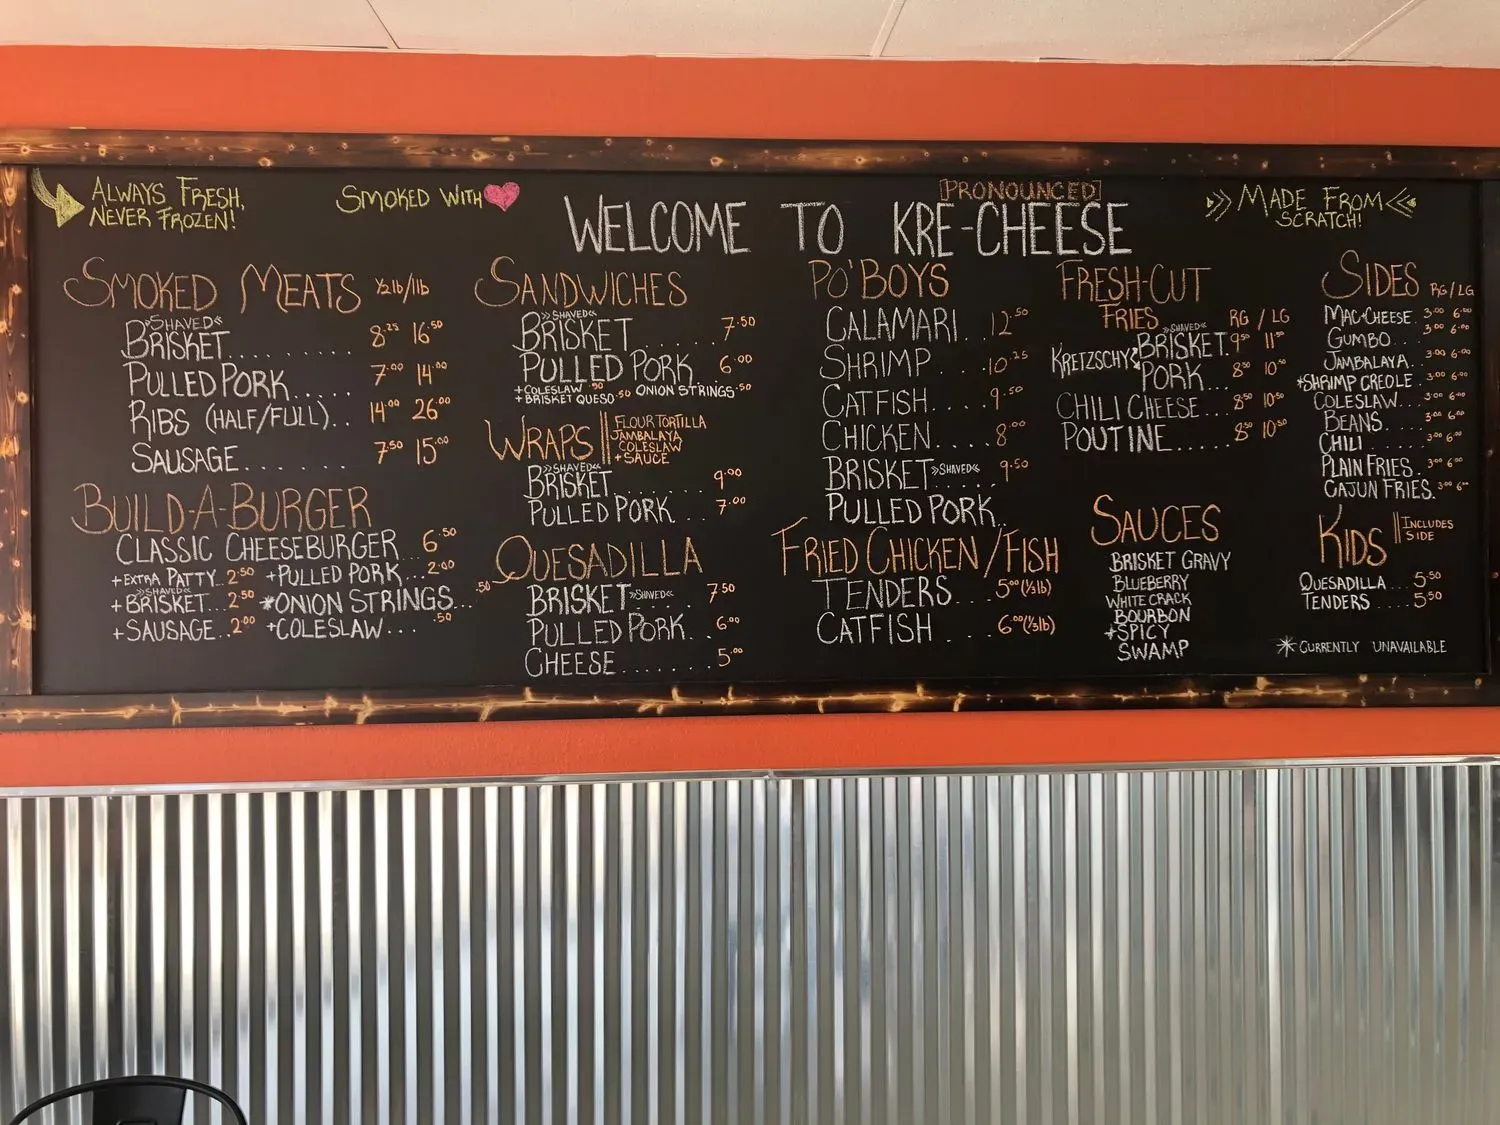 ALWAYS FRESH,
NEVER FROZEN!
SMOKED WITH
[PRONOUNCED]
WELCOME TO KRE-CHEESE
MADE FROM
SCRATCH!
SMOKED MEATS ½lb/1lb
»SHAVED«
BRISKET......... 8.25 16.50
PULLED PORK..... 7.00 14.00
RIBS (HALF/FULL).. 14.00 26.00
SAUSAGE....... 7.50 15.00
BUILD-A-BURGER
CLASSIC CHEESEBURGER... 6.50
+EXTRA PATTY.. 2.50 +PULLED PORK... 2.00
»SHAVED«
+BRISKET... 2.50 *ONION STRINGS... .50
+SAUSAGE.. 2.00 +COLESLAW... .50
SANDWICHES
»SHAVED«
BRISKET....... 7.50
PULLED PORK 6.00
+COLESLAW .50 ONION STRINGS .50
+BRISKET QUESO .50
WRAPS
FLOUR TORTILLA
JAMBALAYA
COLESLAW
+SAUCE
»SHAVED«
BRISKET........ 9.00
PULLED PORK... 7.00
QUESADILLA
BRISKET »SHAVED«... 7.50
PULLED PORK.. 6.00
CHEESE....... 5.00
PO'BOYS
CALAMARI.. 12.50
SHRIMP.... 10.25
CATFISH.... 9.50
CHICKEN.... 8.00
BRISKET »SHAVED«. 9.50
PULLED PORK..
FRIED CHICKEN/FISH
TENDERS... 5.00 (⅓lb)
CATFISH... 6.00 (⅓lb)
FRESH-CUT
FRIES RG / LG
»SHAVED«
KRETZSCHY BRISKET. 11.50
PORK... 8.50 10.50
CHILI CHEESE.... 8.50 10.50
POUTINE..... 8.50 10.50
SAUCES
BRISKET GRAVY
BLUEBERRY
WHITE CRACK
BOURBON
+SPICY
SWAMP
SIDES RG/LG
MAC+CHEESE. 3.00 6.00
GUMBO... 3.00 6.00
JAMBALAYA.. 3.00 6.00
*SHRIMP CREOLE. 3.00 6.00
COLESLAW... 3.00 6.00
BEANS.... 3.00 6.00
CHILI.... 3.00 6.00
PLAIN FRIES. 3.00 6.00
CAJUN FRIES. 3.00 6.00
KIDS
INCLUDES
SIDE
QUESADILLA... 5.50
TENDERS .... 5.50
*CURRENTLY UNAVAILABLE